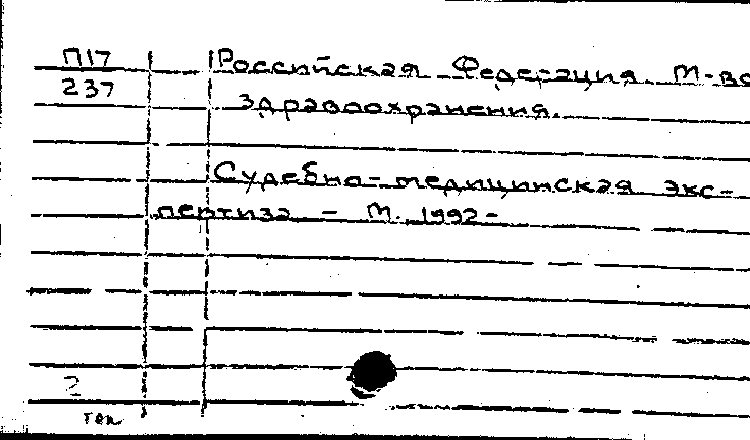 П17 Российская Федерация. М-во
237 здравоохранения.
Судебно-медицинская экс-
пертиза. – М., 1992-
2